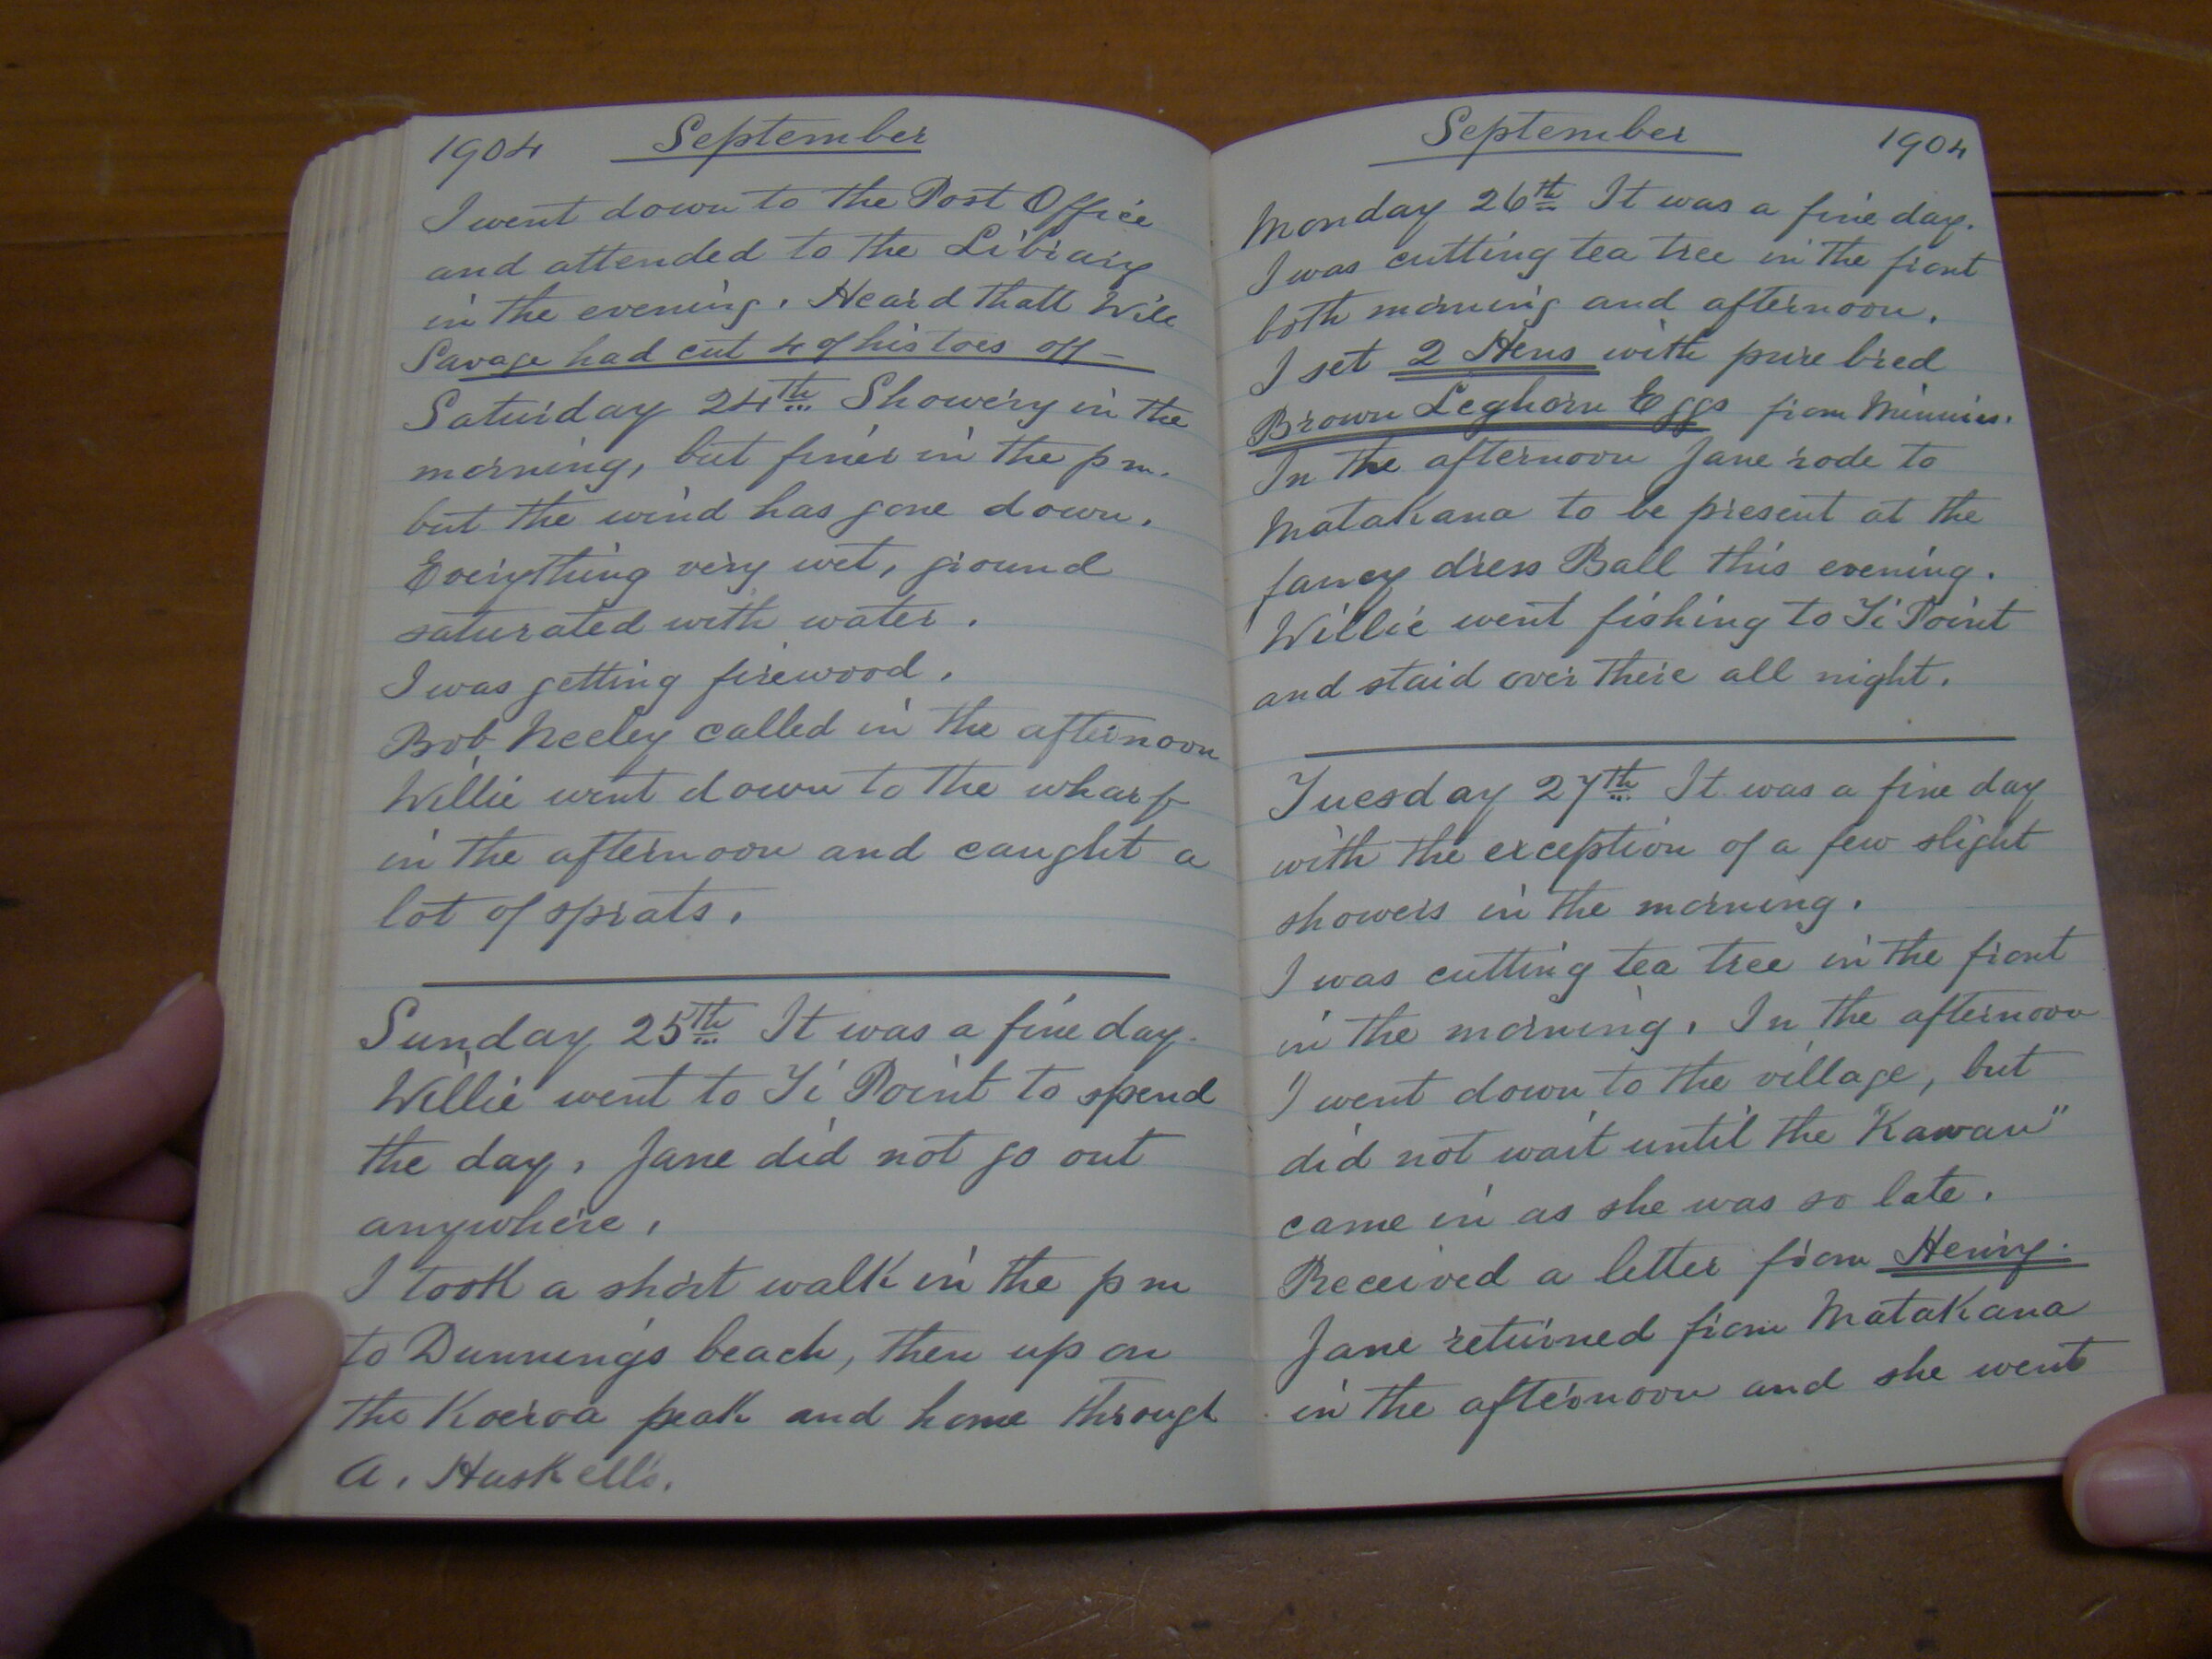 1904 September
I went down to the Post Office
and attended to the Library
in the evening. Heard thatt Will
Savage had cut 4 of his toes off —
Saturday 24th Showery in the
morning, but finer in the p m.
but the wind has gone down.
Everything very wet, ground
saturated with water.
I was getting firewood.
Bob Neeley called in the afternoon
Willie went down to the wharf
in the afternoon and caught a
lot of sprats.
Sunday 25th It was a fine day.
Willie went to Ti Point to spend
the day. Jane did not go out
anywhere.
I took a short walk in the p m
to Dunning's beach, then up on
the Koeroa peak and home through
A. Huskell's.
September 1904
Monday 26th It was a fine day.
I was cutting tea tree in the front
both morning and afternoon.
I set 2 Hens with pure bred
Brown Leghorn Eggs from Minnies.
In the afternoon Jane rode to
Matakana to be present at the
fancy dress Ball this evening.
Willie went fishing to Ti Point
and staid over there all night.
Tuesday 27th It was a fine day
with the exception of a few slight
showers in the morning.
I was cutting tea tree in the front
in the morning. In the afternoon
I went down to the village, but
did not wait until the "Kawau"
came in as she was so late.
Received a letter from Henry.
Jane returned from Matakana
in the afternoon and she went